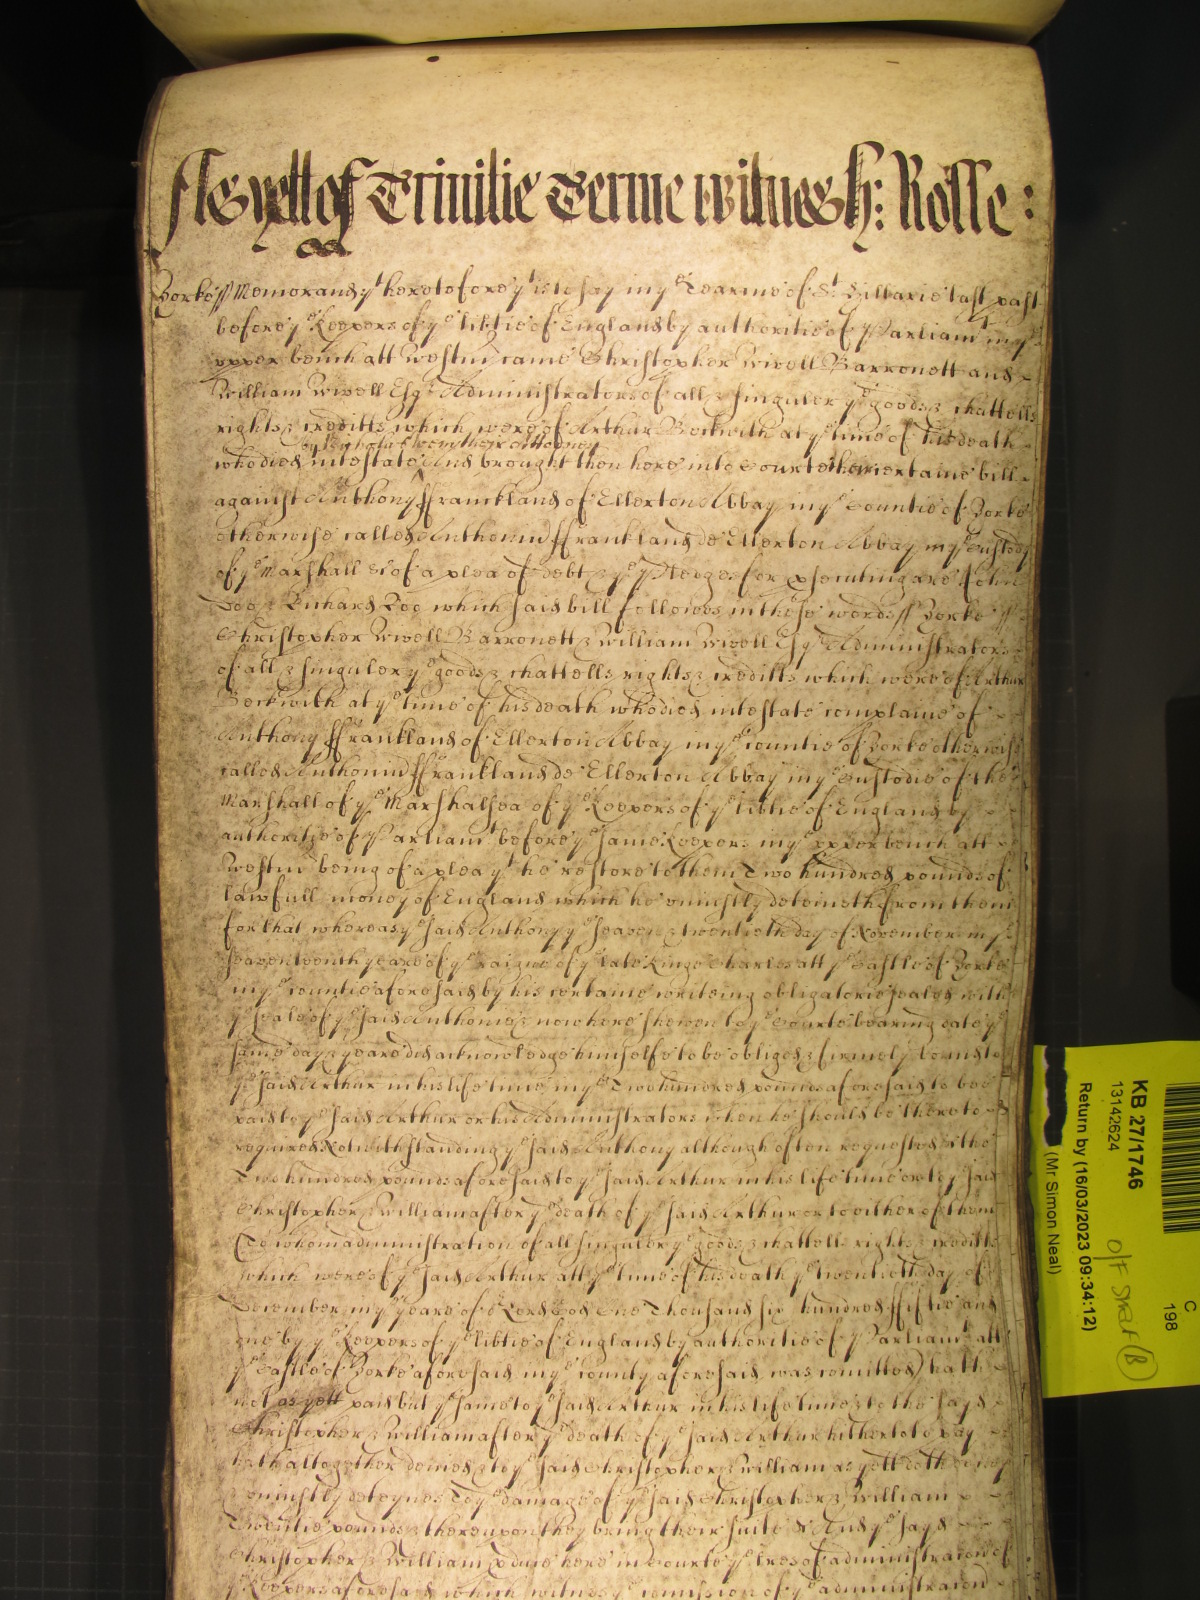 As yett of Trinitie Terme witnes H: Rolle:
Yorke ss Memorand yt heretofore yt is to say in ye Tearme of St Hillarie last past
before ye Keepers of ye libtie of England by authoritie of Parliamt in ye
upper bench att Westm came Christopher Wivell Barronett and
William Wivell Esqr Administrators of all & singuler ye goods & chattells
rights & creditts which were of Arthur Beckwith at ye time of his death
by their attorney
who died intestate And brought then here into Courte their certaine bill
against Anthony ffranckland of Ellerton Abbay in ye Countie of Yorke
otherwise called Anthonid ffrankland de Ellerton Abbay in ye Custody
of ye Marshall &c of a plea of debt & ye Pledges for psecuting are John
Doo & Richard Roo which said bill followes in these words ss Yorke ss
Christopher Wivell Barronett & William Wivell Esqr Administrators
of all & singuler ye goods & chattells rights & creditts which were of Arthur
Beckwith at ye time of his death who died intestate complaine of
Anthony ffrankland of Ellerton Abbay in ye countie of Yorke otherwise
called Anthonid ffrankland de Ellerton Abbay in ye Custodie of the
Marshall of ye Marshalsea of ye Keepers of ye libtie of England by
authoritie of Parliamt before ye same Keepers in ye upper bench att
Westm being of a plea yt he restore to them Two hundred pounds of
lawfull money of England which he uniustly deteineth from them
for that whereas ye said Anthony ye seaven & twentieth day of November in ye
seaventeenth yeare of ye raigne of ye late Kinge Charles att ye Castle of Yorke
in ye countie aforesaid by his certaine writeing obligatorie sealed with
ye seale of ye said Anthonie & now here shewen to ye Courte bearing date ye
same day & yeare did acknowledge himselfe to be obliged & firmely bound to
ye said Arthur in his life time in ye Two hundred pounds aforesaid to bee
paid to ye said Arthur or his Administrators when he should be thereto
required Notwithstanding ye said Anthony although often requested the
Two hundred pounds aforesaid to ye said Arthur in his life time or to ye said
Christopher & William after ye death of ye said Arthur or to either of them
(To whom administration of all singuler ye goods & chattells rights & creditts
which were of ye said Arthur att ye time of his death ye twentieth day of
December in ye yeare of or Lord God One Thousand six hundred ffiftie and
one by ye Keepers of ye libtie of England by authoritie of Parliamt att
ye Castle of Yorke aforesaid in ye county aforesaid was comitted) hath
not as yett paid but ye same to ye said Arthur in his life time & to the said
Christopher & William after ye death of ye said Arthur hitherto to pay
hath altogether denied & to ye said Christopher & William as yett doth deny
& uniustly deteynes To ye damage of ye said Christopher & William
Twentie pounds & thereupon they bring their suite &c And ye said
Christopher & William pduce here in Courte ye lres of administracon of
ye Keepers aforesaid which witness ye comission of ye administracon
C
198
KB 27/1746
13142624
O/F Strat (B)
Return by (16/03/2023 09:34:12)
(Mr Simon Neal)